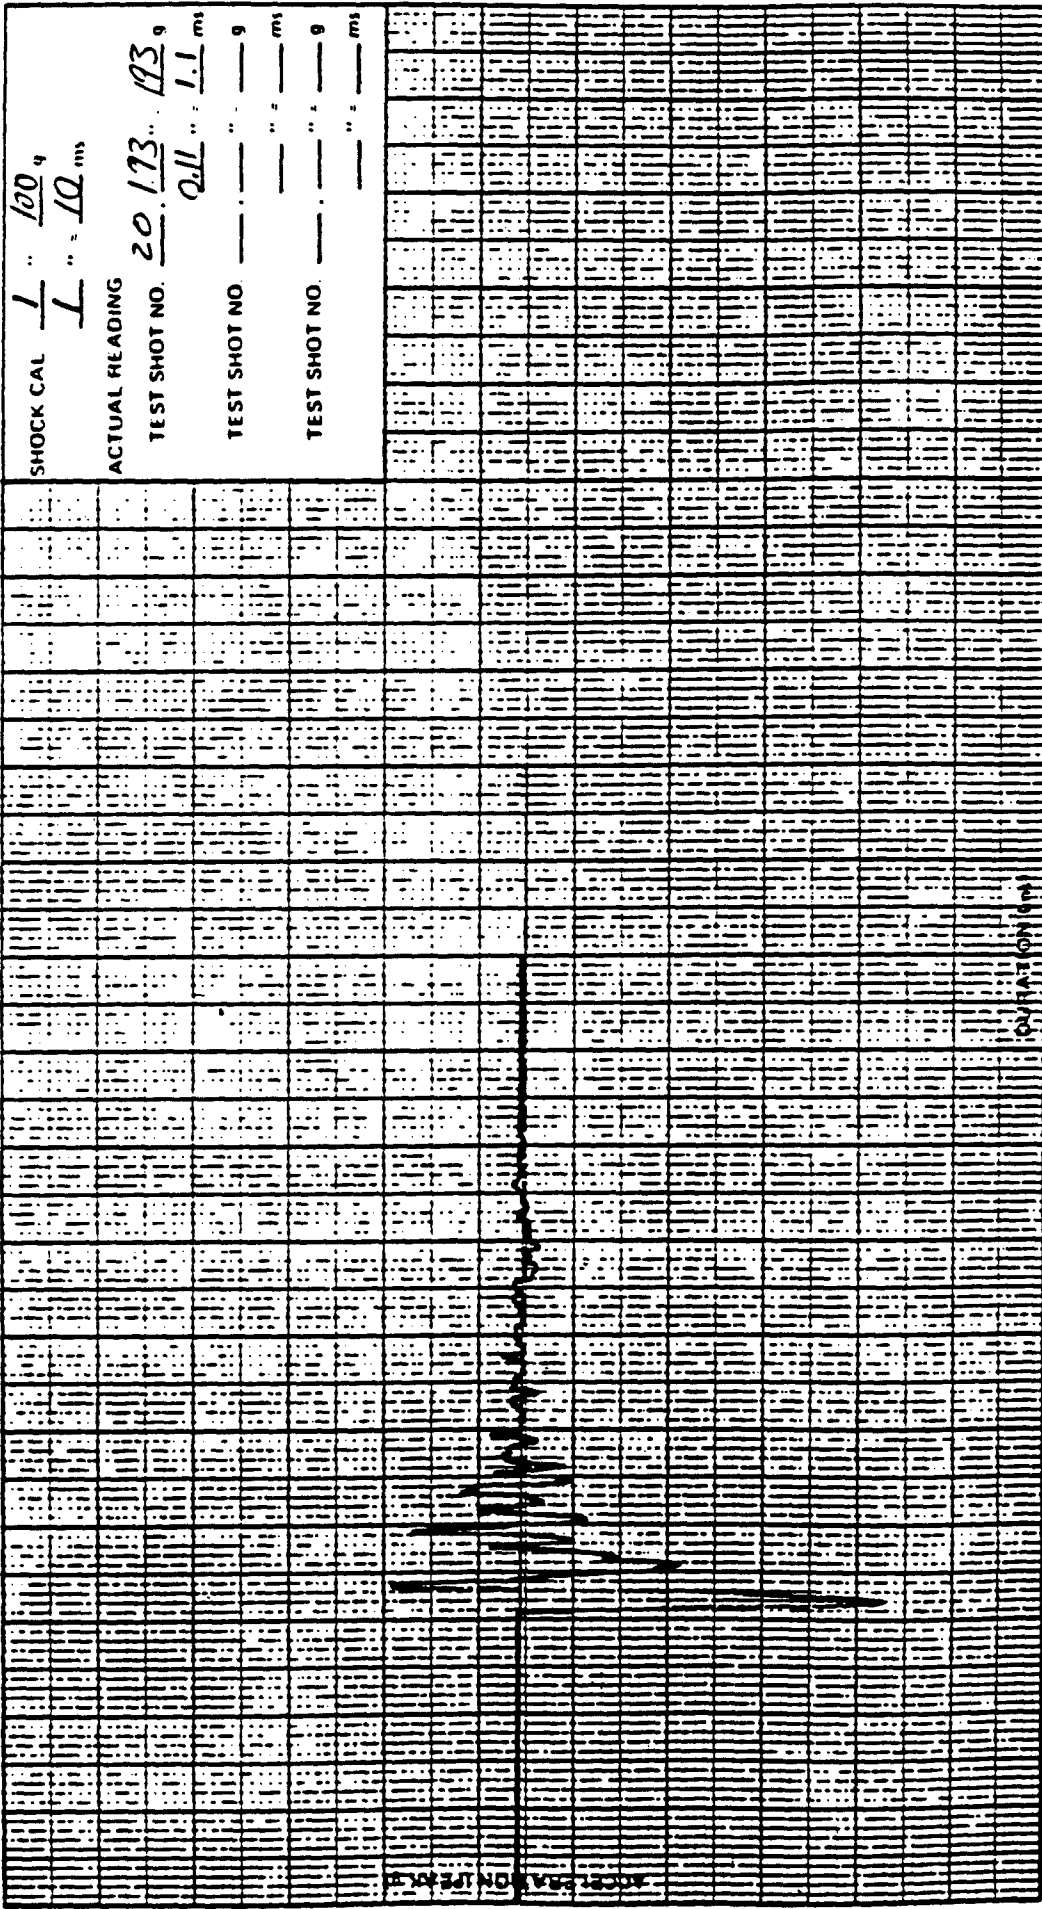 SHOCK CAL 1 " 100 g
1 " = 10 ms
ACTUAL READING
TEST SHOT NO. 20 . 1.93 " . 193 g
0.11 " = 1.1 ms
TEST SHOT NO ____ . ____ " . ____ g
____ " = ____ ms
TEST SHOT NO. ____ . ____ " = ____ g
____ " = ____ ms
ACCELERATION (PEAK g)
DURATION (ms)